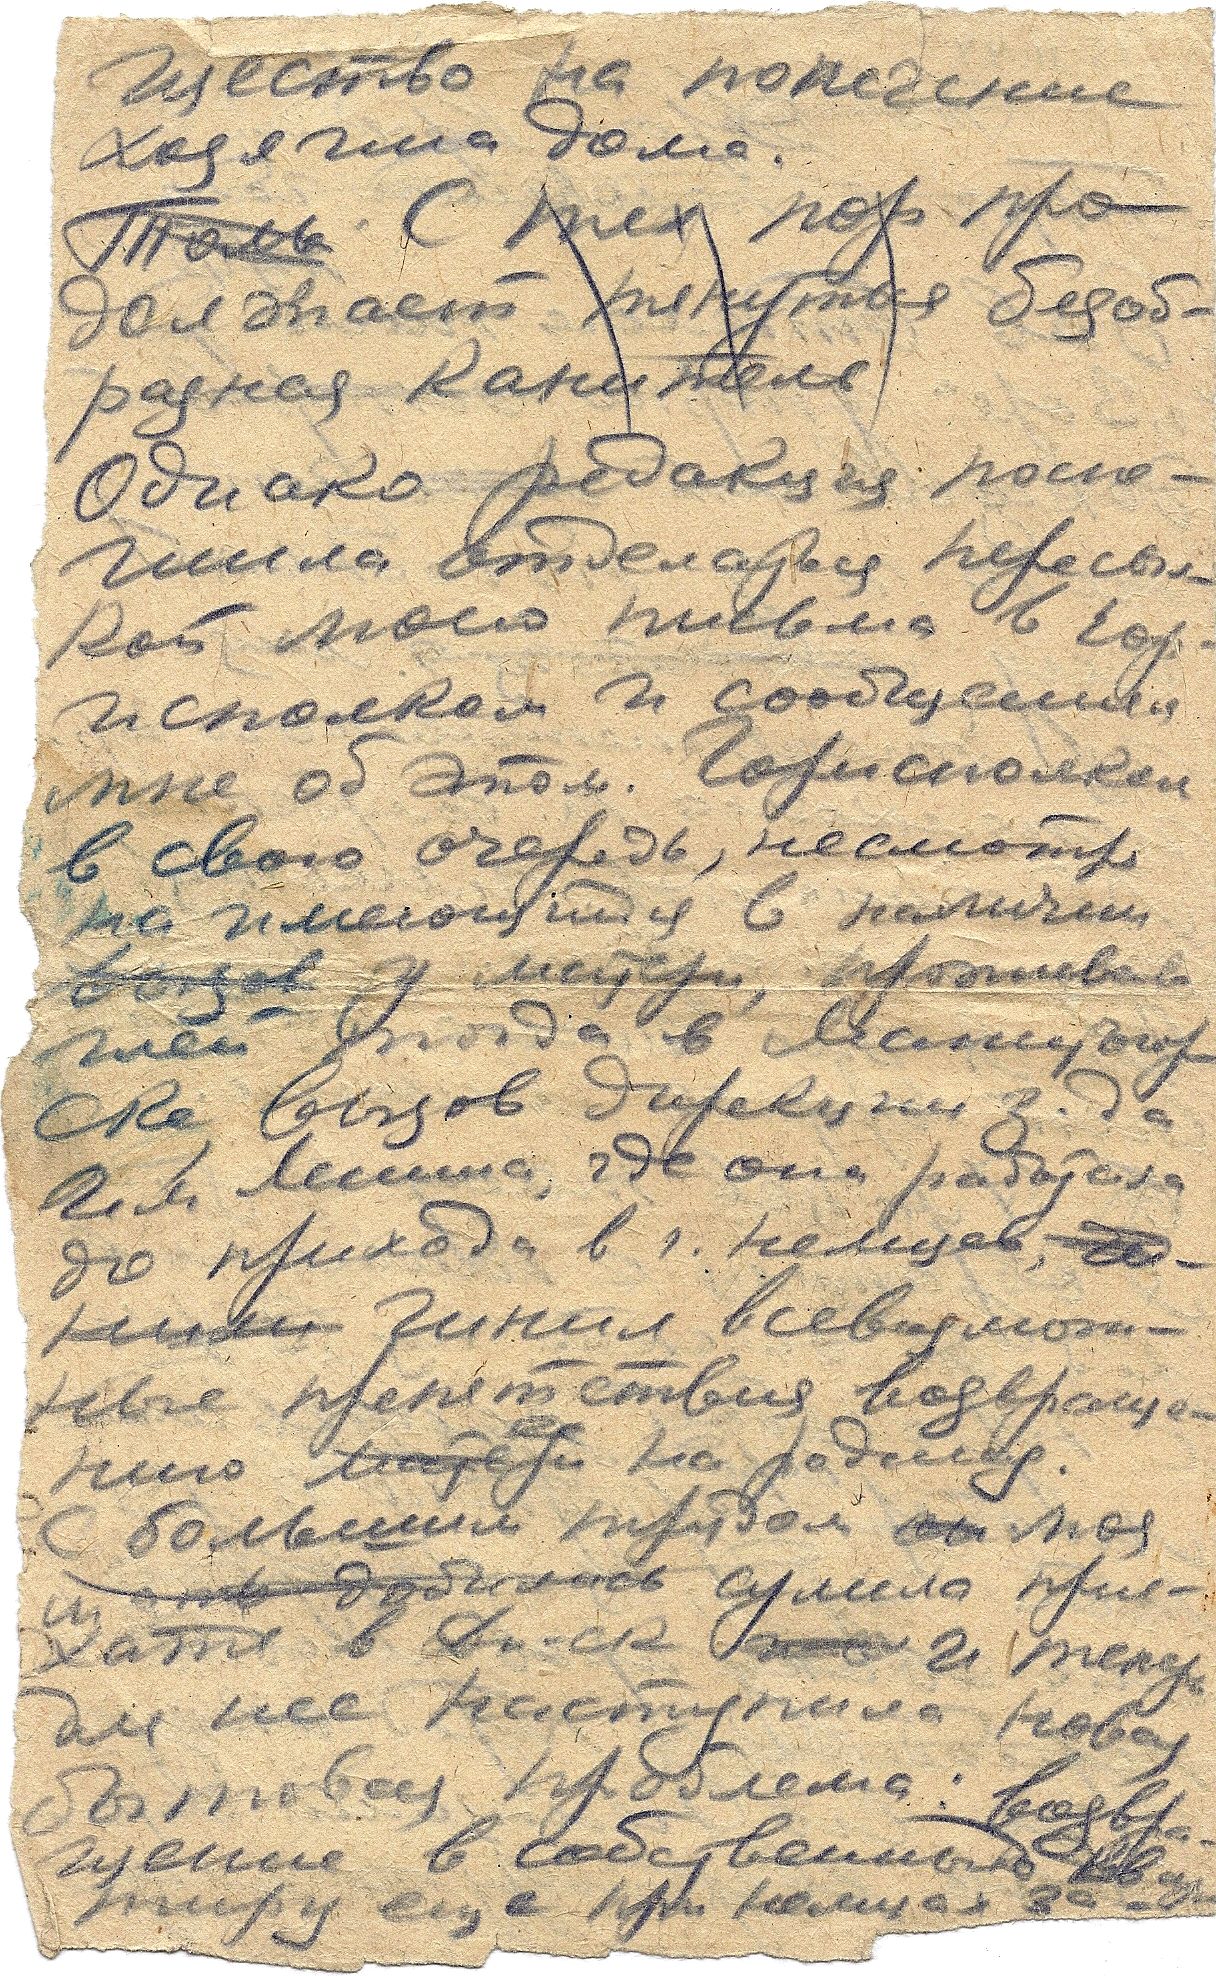 щество на попечение
хозяина дома.
Толь С тех пор про-
должает тянуться безоб-
разная канитель
Однако редакция поспе-
шила отделаться пересыл-
кой моего письма в гор-
исполком и сообщением
мне об этом. Горисполком
в свою очередь, несмотря
на имеющийся в наличии
вызов у матери, проживав
шей тогда в Магнитогор-
ске, вызов дирекции з-да
им Ленина, где она работала
до прихода в г. немцев,
чинил всевозмож-
ные препятствия возвраще-
нию матери ее на родину.
С большим трудом он моя
м ть добилась сумела прие-
хать в Дн-ск и теперь
для нее наступила новая
бытовая проблема: возвра-
щение в собственную квар
тиру еще при немцах за